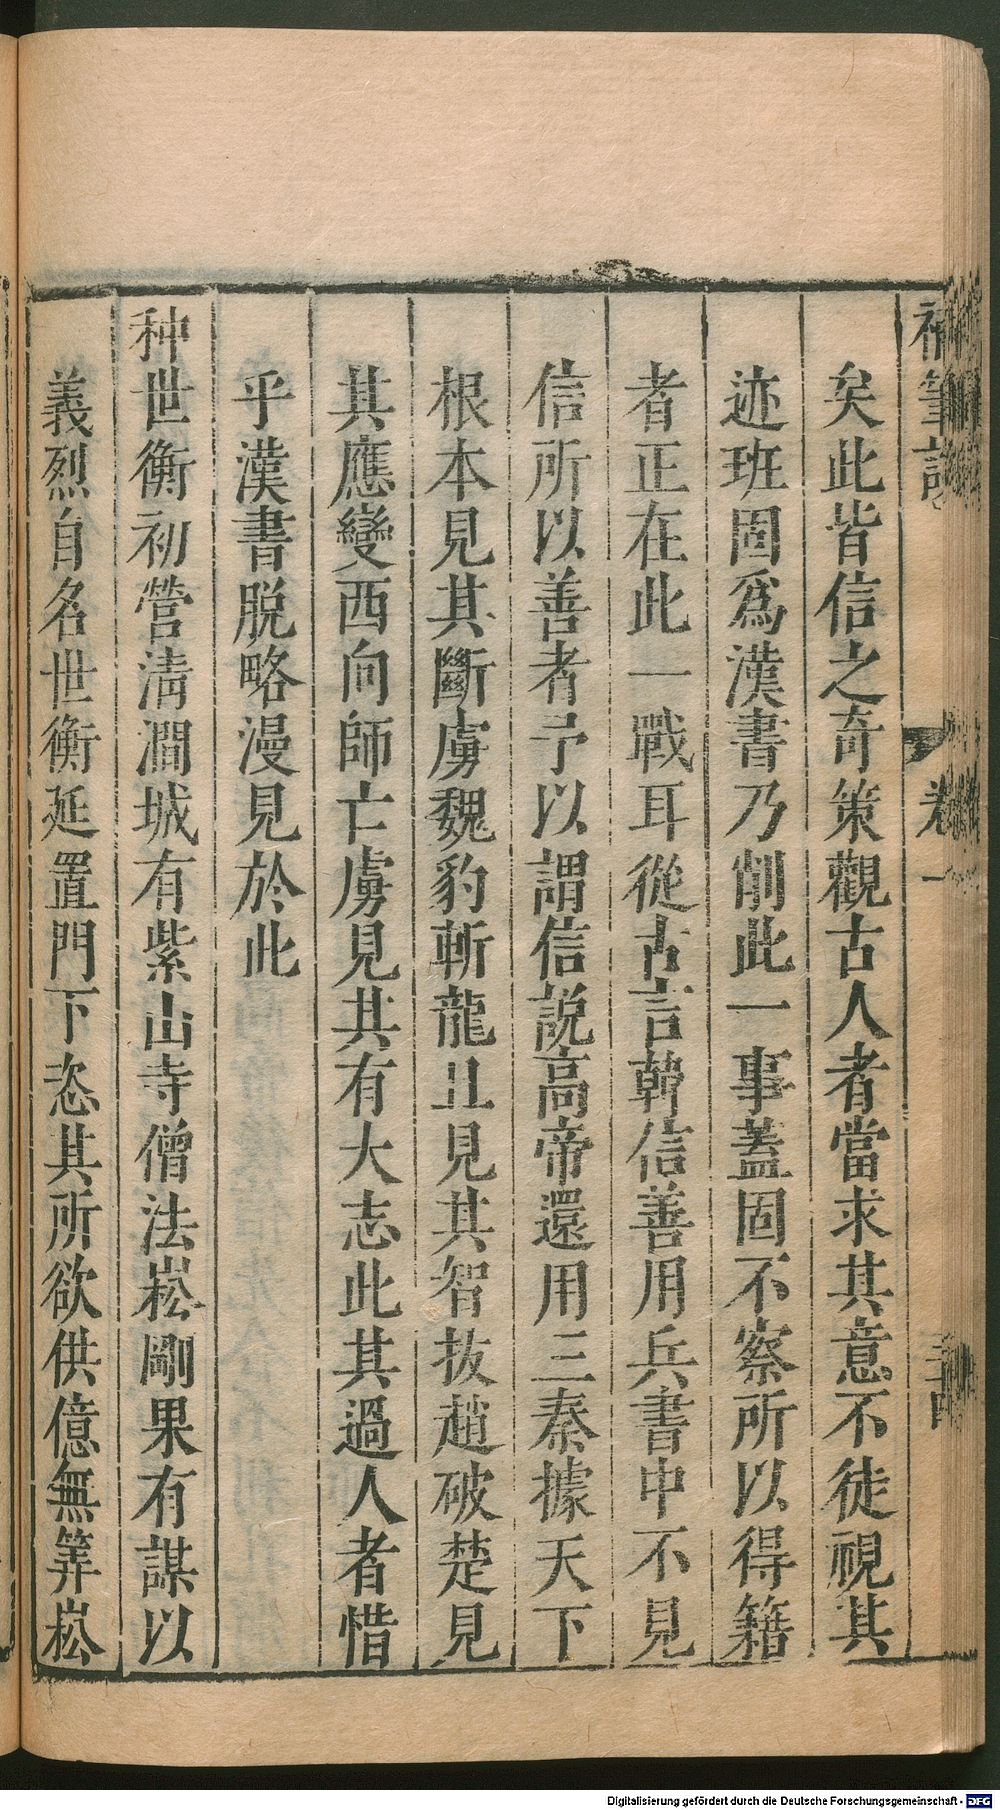 補筆談
卷一
三十四
矣此皆信之奇策觀古人者當求其意不徒視其
迹班固爲漢書乃削此一事蓋固不察所以得籍
者正在此一戰耳從古言韓信善用兵書中不見
信所以善者予以謂信説高帝還用三秦據天下
根本見其斷虜魏豹斬龍且見其智拔趙破楚見
其應變西向師亡虜見其有大志此其過人者惜
乎漢書脱略漫見於此
种世衡初營清澗城有紫山寺僧法崧剛果有謀以
義烈自名世衡延置門下恣其所欲供億無筭崧
Digitalisierung gefördert durch die Deutsche Forschungsgemeinschaft - DFG